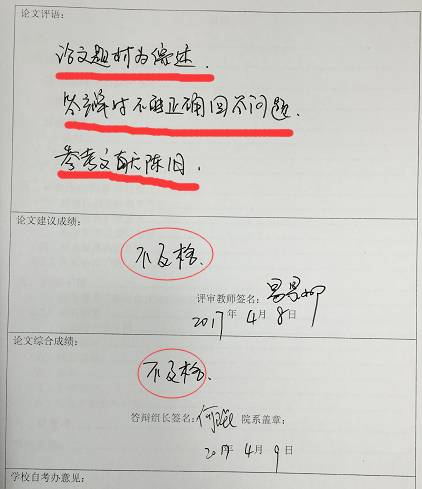 论文评语:
论文题材为综述.
答辩时不能正确回答问题.
参考文献陈旧.
论文建议成绩:
不及格.
评审教师签名:
2017年 4月 8日
论文综合成绩:
不及格.
答辩组长签名: 院系盖章:
2017年 4月 9日
学校自考办意见: